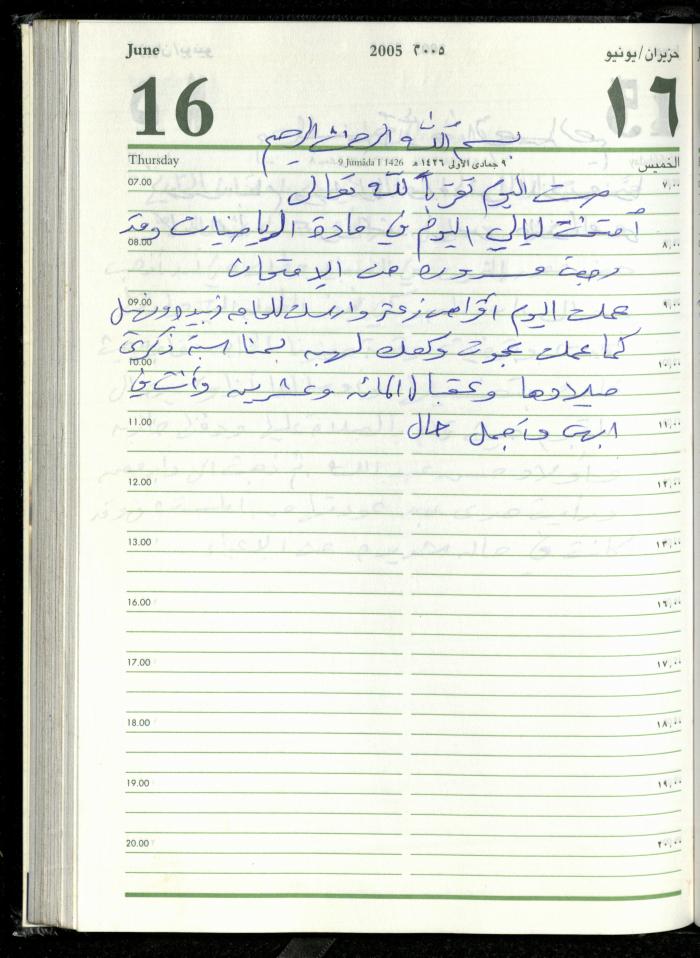 June 2005 ٢٠٠٥ حزيران/يونيو
16 ١٦
بسم الله الرحمن الرحيم
Thursday 9 Jumâda I 1426 ٩ جمادى الأولى ١٤٢٦ هـ الخميس
07.00 صمت اليوم تقرباً لله تعالى ٧,٠٠
أمتحنت ليالي اليوم في مادة الرياضيات وقد
08.00 ٨,٠٠
رجعت مسرورة من الإمتحان
09.00 عملت اليوم أقراص زعتر وارسلت للحاجه ٩,٠٠
كما عملت عجوت وكعك لهبه بمناسبة ذكرى
10.00 ١٠,٠٠
ميلادها وعقبال المائه وعشرين وأنت في
11.00 ابهى وأجمل حال ١١,٠٠
12.00 ١٢,٠٠
13.00 ١٣,٠٠
16.00 ١٦,٠٠
17.00 ١٧,٠٠
18.00 ١٨,٠٠
19.00 ١٩,٠٠
20.00 ٢٠,٠٠